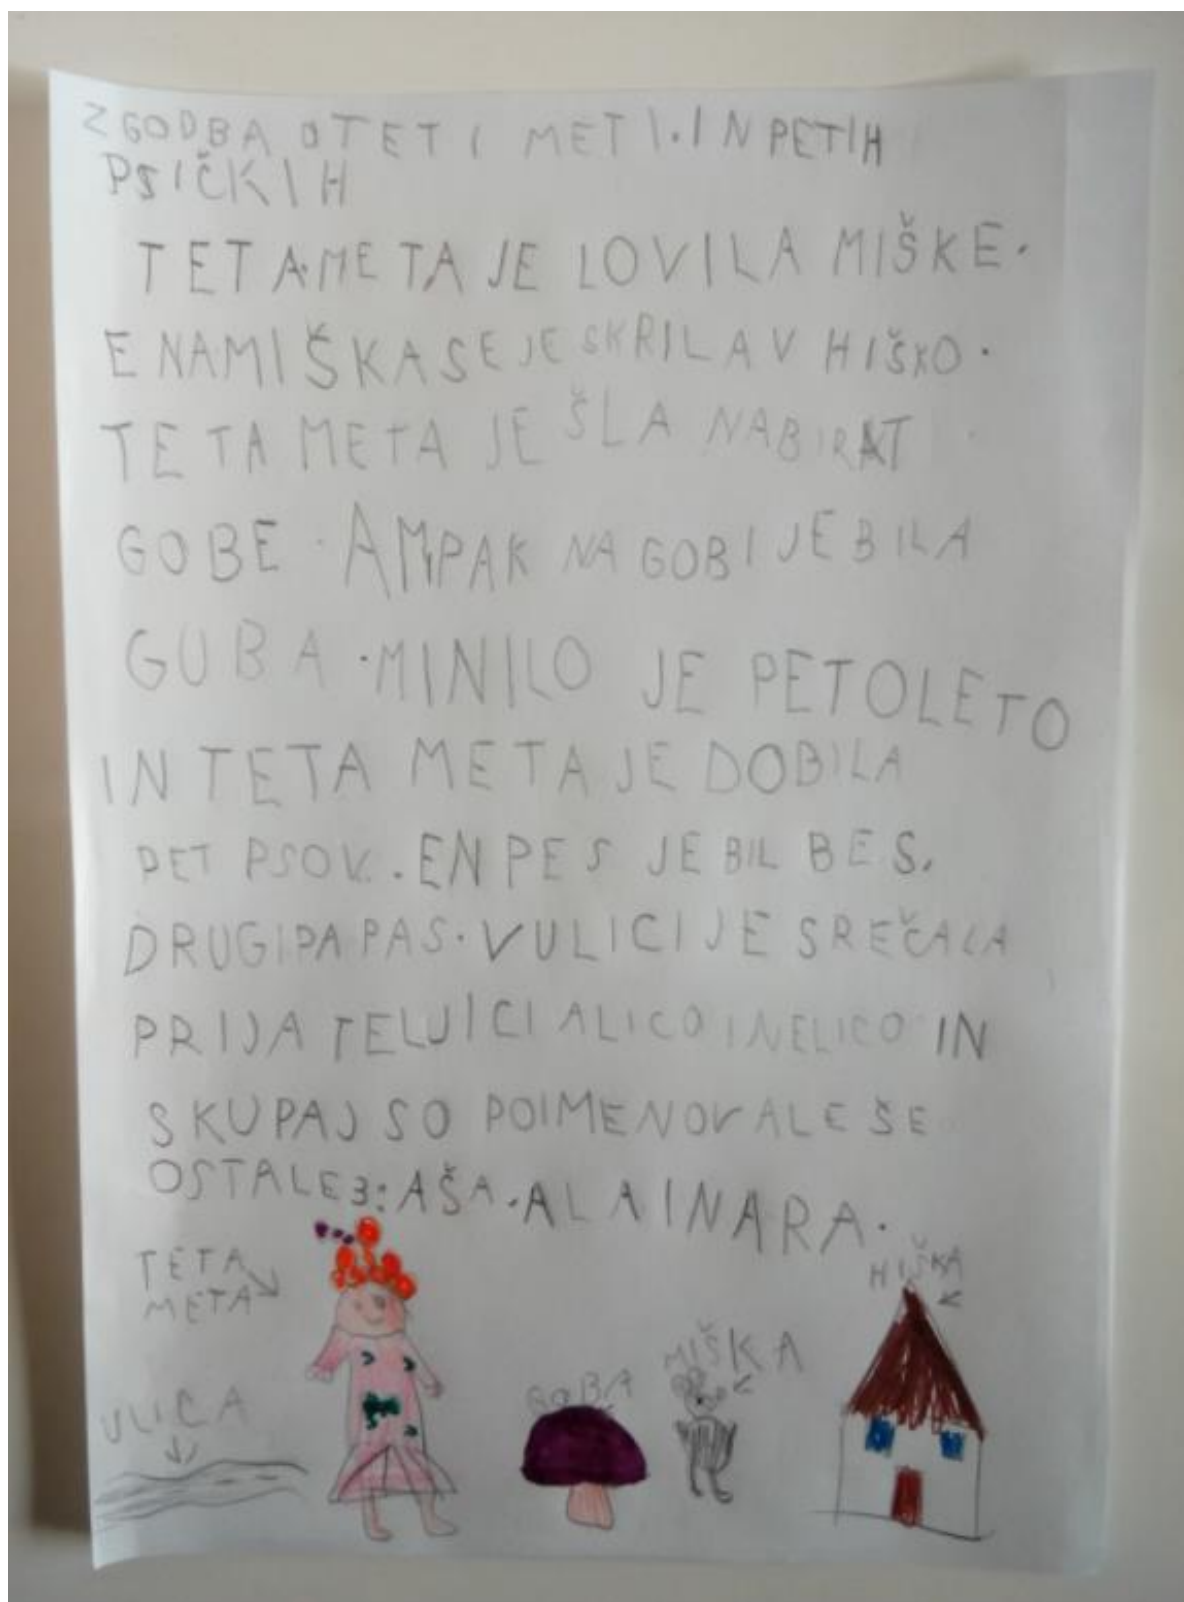 ZGODBA O TETI METI. IN PETIH
PSIČKIH
TETA META JE LOVILA MIŠKE.
ENA MIŠKA SE JE SKRILA V HIŠKO.
TETA META JE ŠLA NABIRAT
GOBE. AMPAK NA GOBI JE BILA
GUBA. MINILO JE PETO LETO
IN TETA META JE DOBILA
PET PSOV. EN PES JE BIL BES.
DRUGI PA PAS. V ULICI JE SREČALA
PRIJATELJICI ALICO IN ELICO IN
SKUPAJ SO POIMENOVALE ŠE
OSTALE 3: AŠA. ALA IN ARA.
TETA
META
HIŠKA
MIŠKA
GOBA
ULICA